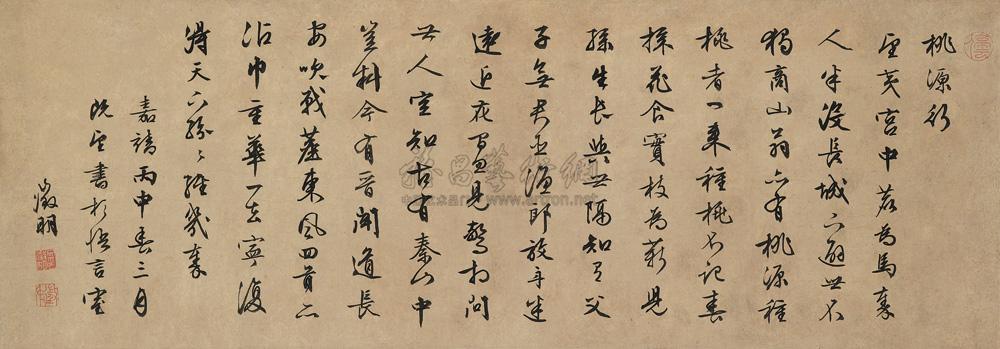 桃源行
望夷宮中鹿為馬秦
人半沒長城下避世不
獨商山翁亦有桃源種
桃者一來種桃不記春
採花食實枝為薪兒
孫生長與世隔知有父
子無君臣漁郎放舟迷
遠近花間忽見驚相問
世人空知古有秦山中
豈料今有晉聞道長
安吹戰塵東風回首亦
沾巾重華一去寧復
得天下紛〻經幾秦
嘉靖丙申春三月
既望書於悟言室
徵明
雅昌藝術網
www.artron.net